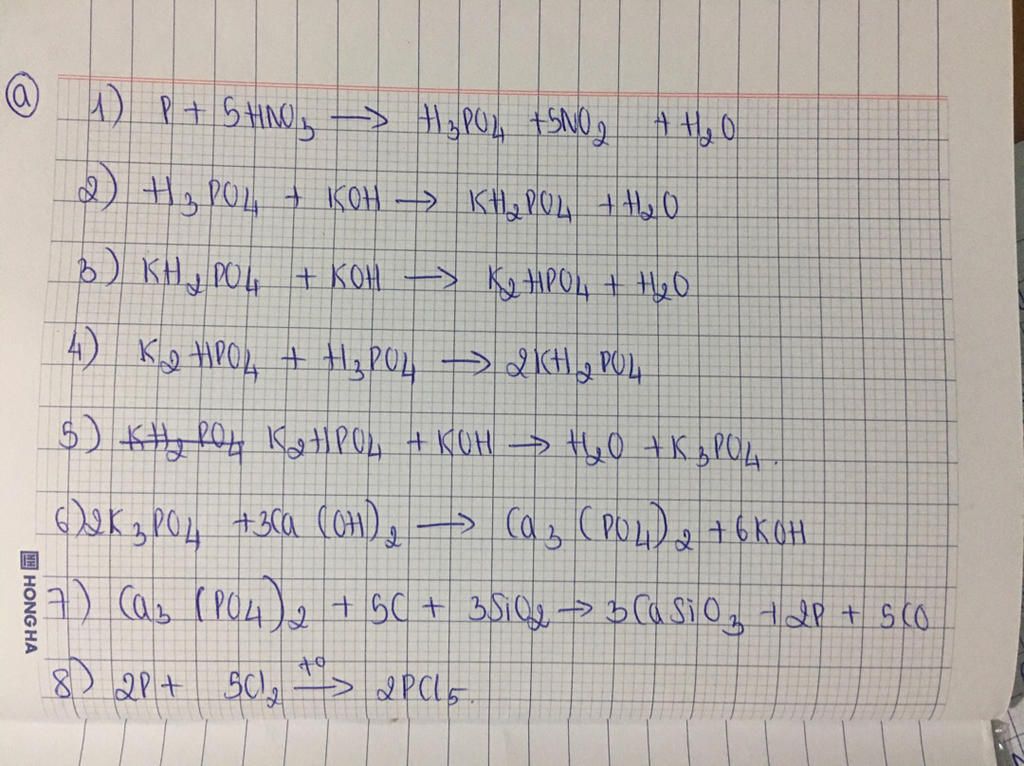 ⓐ
1) P + 5HNO3 → H3PO4 + 5NO2 + H2O
2) H3PO4 + KOH → KH2PO4 + H2O
3) KH2PO4 + KOH → K2HPO4 + H2O
4) K2HPO4 + H3PO4 → 2KH2PO4
5) KH2PO4 K2HPO4 + KOH → H2O + K3PO4.
6) 2K3PO4 + 3Ca(OH)2 → Ca3(PO4)2 + 6KOH
7) Ca3(PO4)2 + 5C + 3SiO2 → 3CaSiO3 + 2P + 5CO
8) 2P + 5Cl2 t° → 2PCl5.
HONG HA